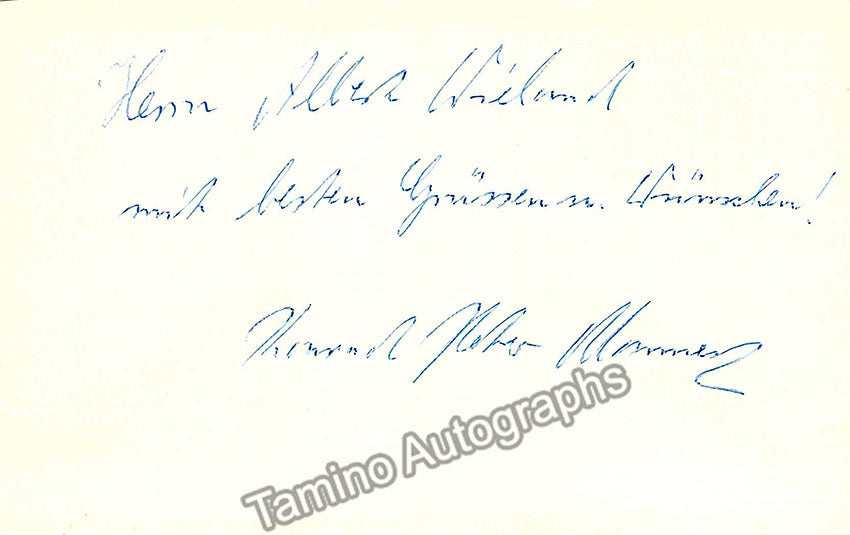 Herrn Albert Wieland
mit besten Grüssen u. Wünschen!
Konrad Peter Mannert
Tamino Autographs